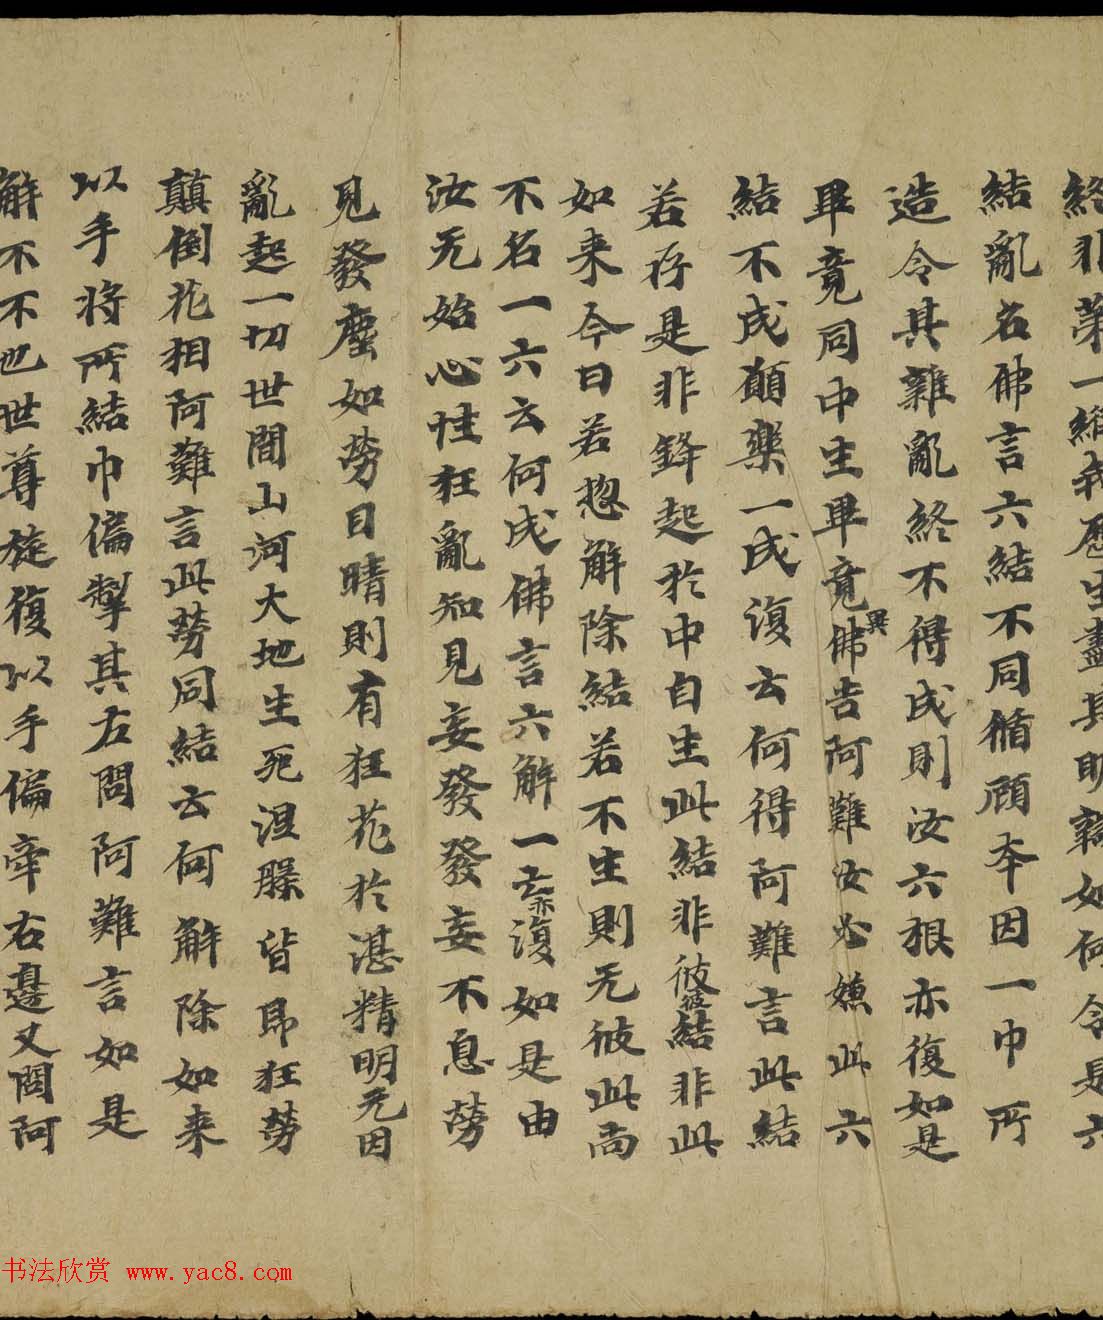 終非第一縱我歷生盡其明辯如何令是六
結亂名佛言六結不同循顧本因一巾所
造令其雜亂終不得成則汝六根亦復如是
畢竟同中生畢竟異佛告阿難汝必嫌此六
結不成願樂一成復云何得阿難言此結
若存是非鋒起於中自生此結非彼彼結非此
如来今日若惣解除結若不生則无彼此尚
不名一六云何成佛言六解一云亦復如是由
汝无始心性狂亂知見妄發發妄不息勞
見發塵如勞目睛則有狂花於湛精明无因
亂起一切世間山河大地生死涅槃皆即狂勞
顛倒花相阿難言此勞同結云何解除如来
以手將所結巾偏掣其左問阿難言如是
解不不也世尊旋復以手偏牽右邊又問阿
书法欣赏 www.yac8.com